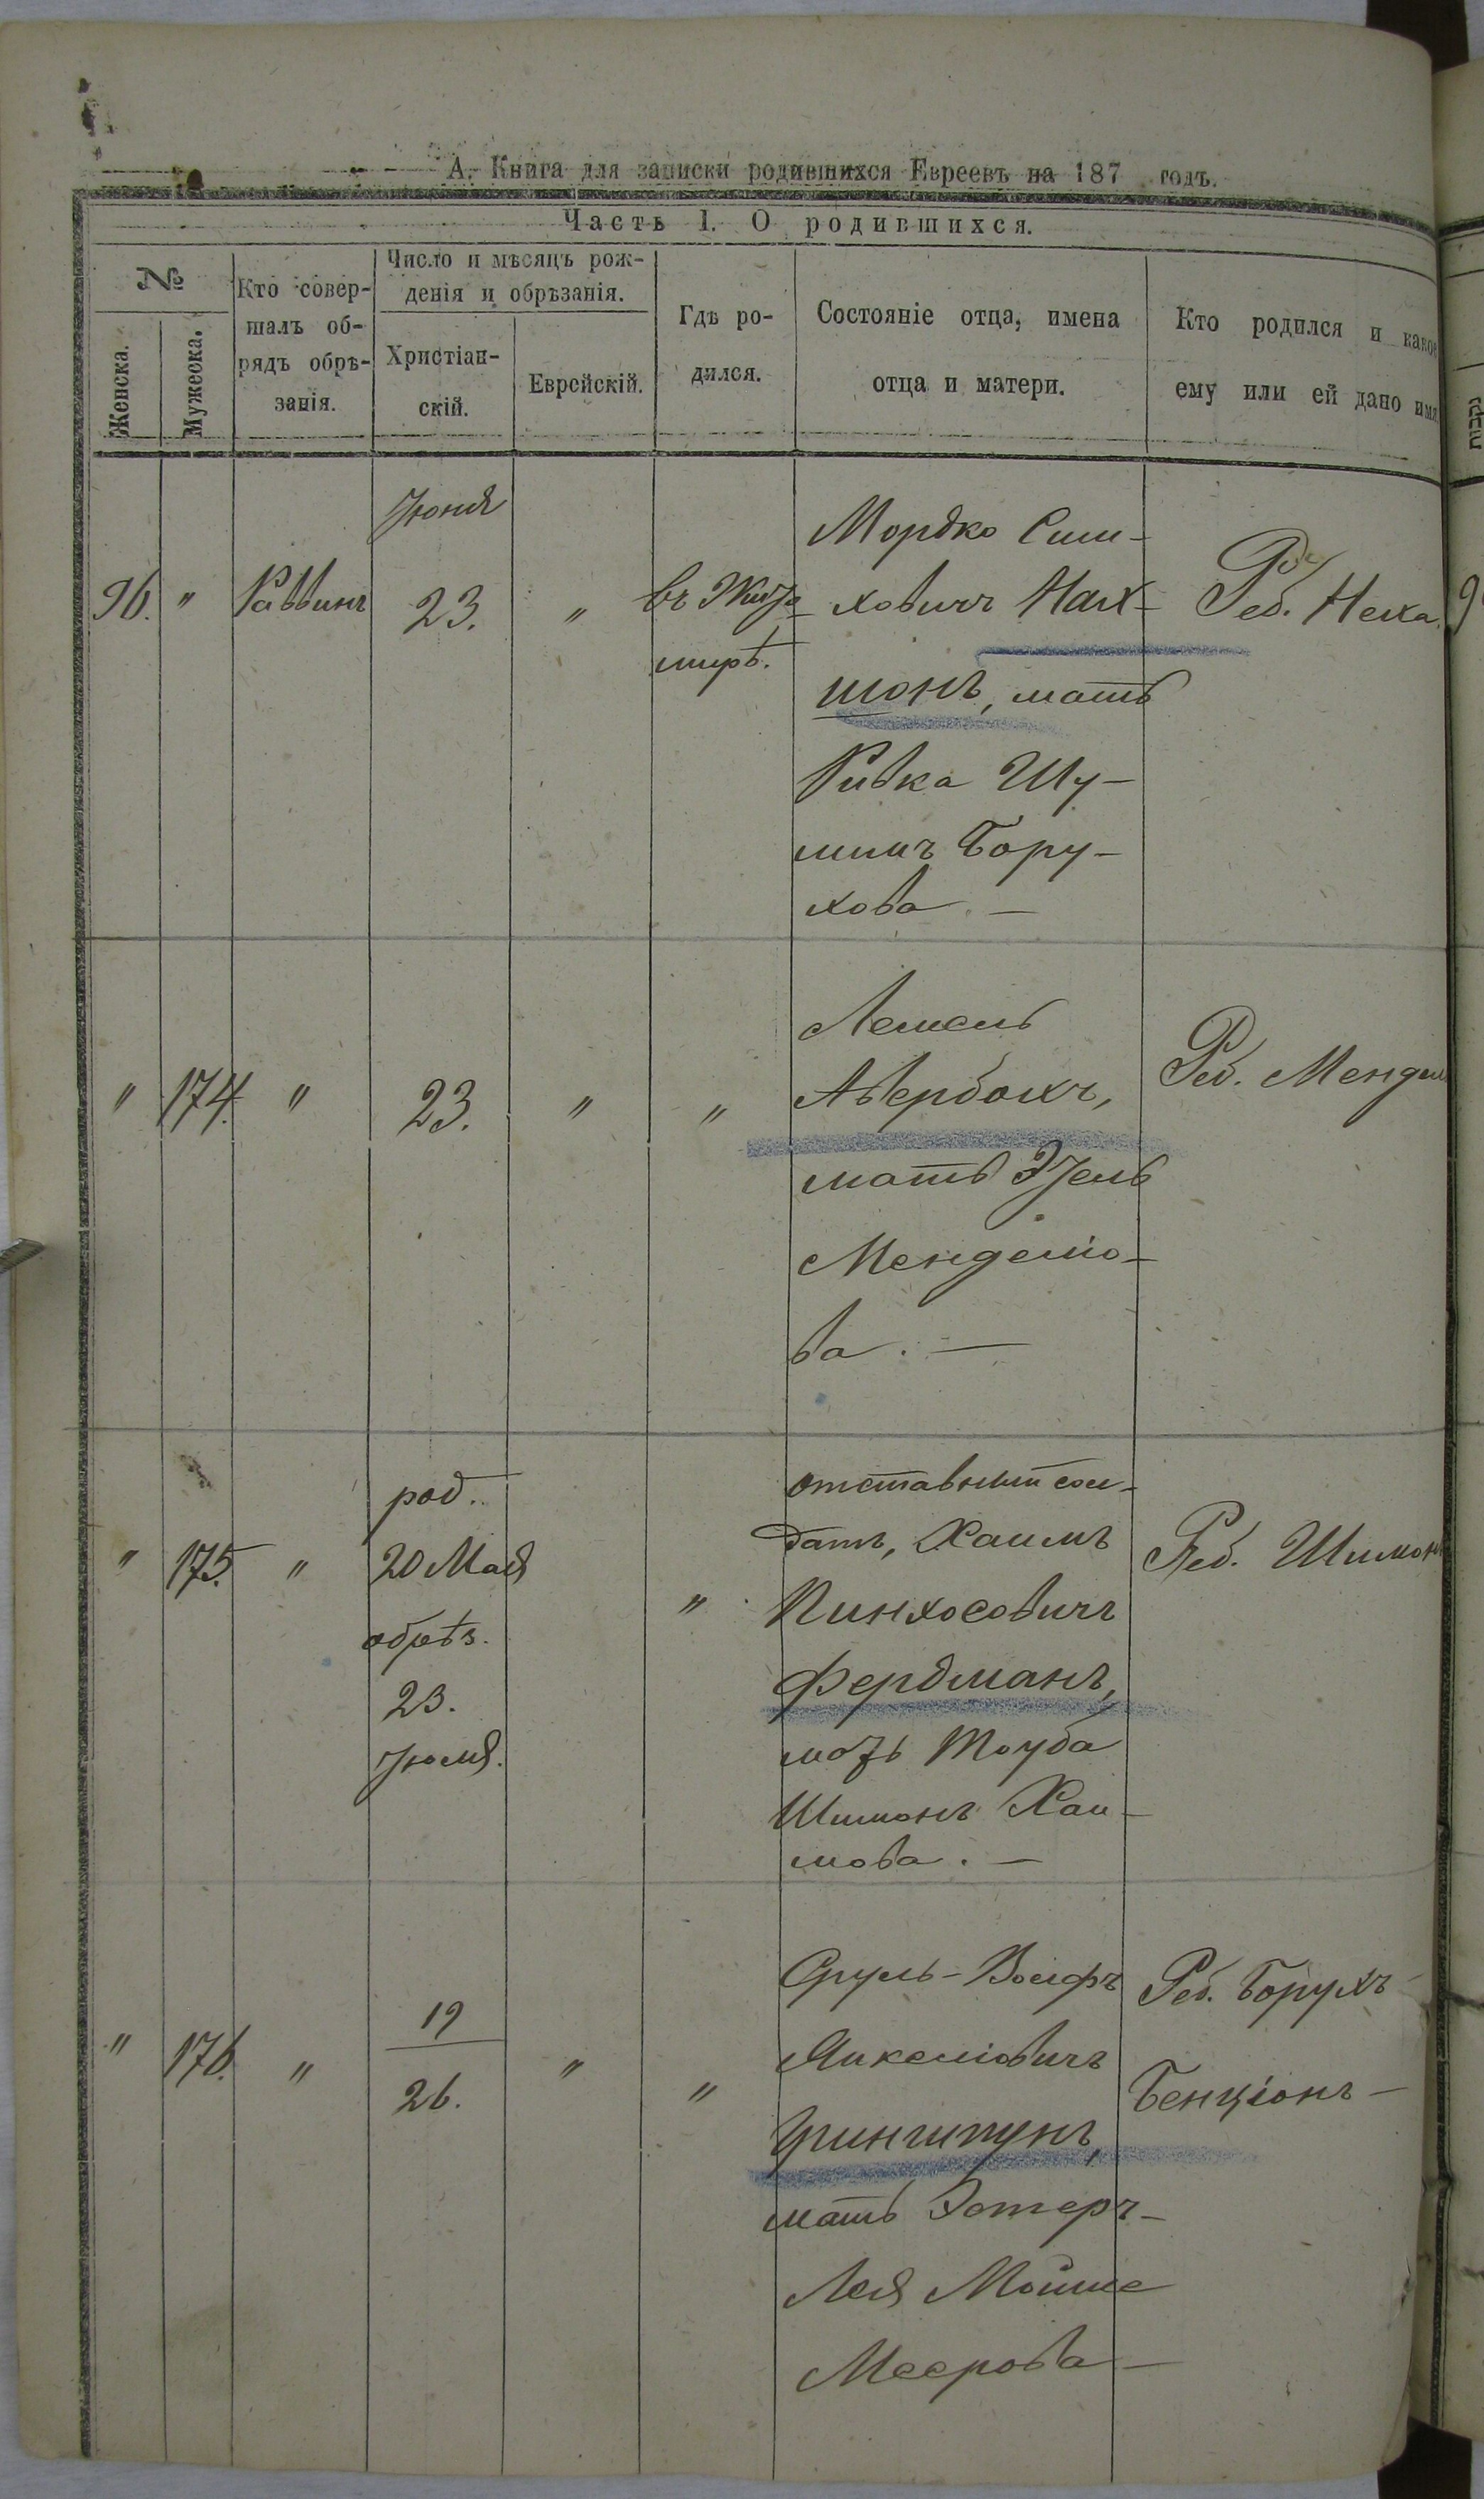 А. Книга для записки родившихся Евреевъ на 187 годъ.
Часть I. О родившихся.
№
Женска.
Мужеска.
Кто совер-
шалъ об-
рядъ обрѣ-
занія.
Число и мѣсяцъ рож-
денія и обрѣзанія.
Христіан-
скій.
Еврейскій.
Гдѣ ро-
дился.
Состояніе отца, имена
отца и матери.
Кто родился и какое
ему или ей дано имя
96. " Раввинъ
Іюня
23.
"
въ Жито
мирѣ.
Мордко Сим-
ховичъ Нах-
шонъ, мать
Ривка Шу-
лимъ Бору-
хова. —
Реб. Неха.
" 174. " 23. " "
Лемель
Авербахъ,
мать Эзель
Менделіо-
ва. —
Реб. Мендель
" 175. "
род.
20 Мая
обрѣз.
23.
Іюня.
"
отставный сол-
датъ, Хаимъ
Пинхосовичъ
Фердманъ,
мать Тауба
Шимонъ Хаи-
мова. —
Реб. Шимонъ
" 176. "
19
26.
" "
Сруль-Вольфъ
Янкеліовичъ
Грингипунъ,
мать Эстеръ-
Лея Мойше
Меерова —
Реб. Борухъ
Бенціонъ —